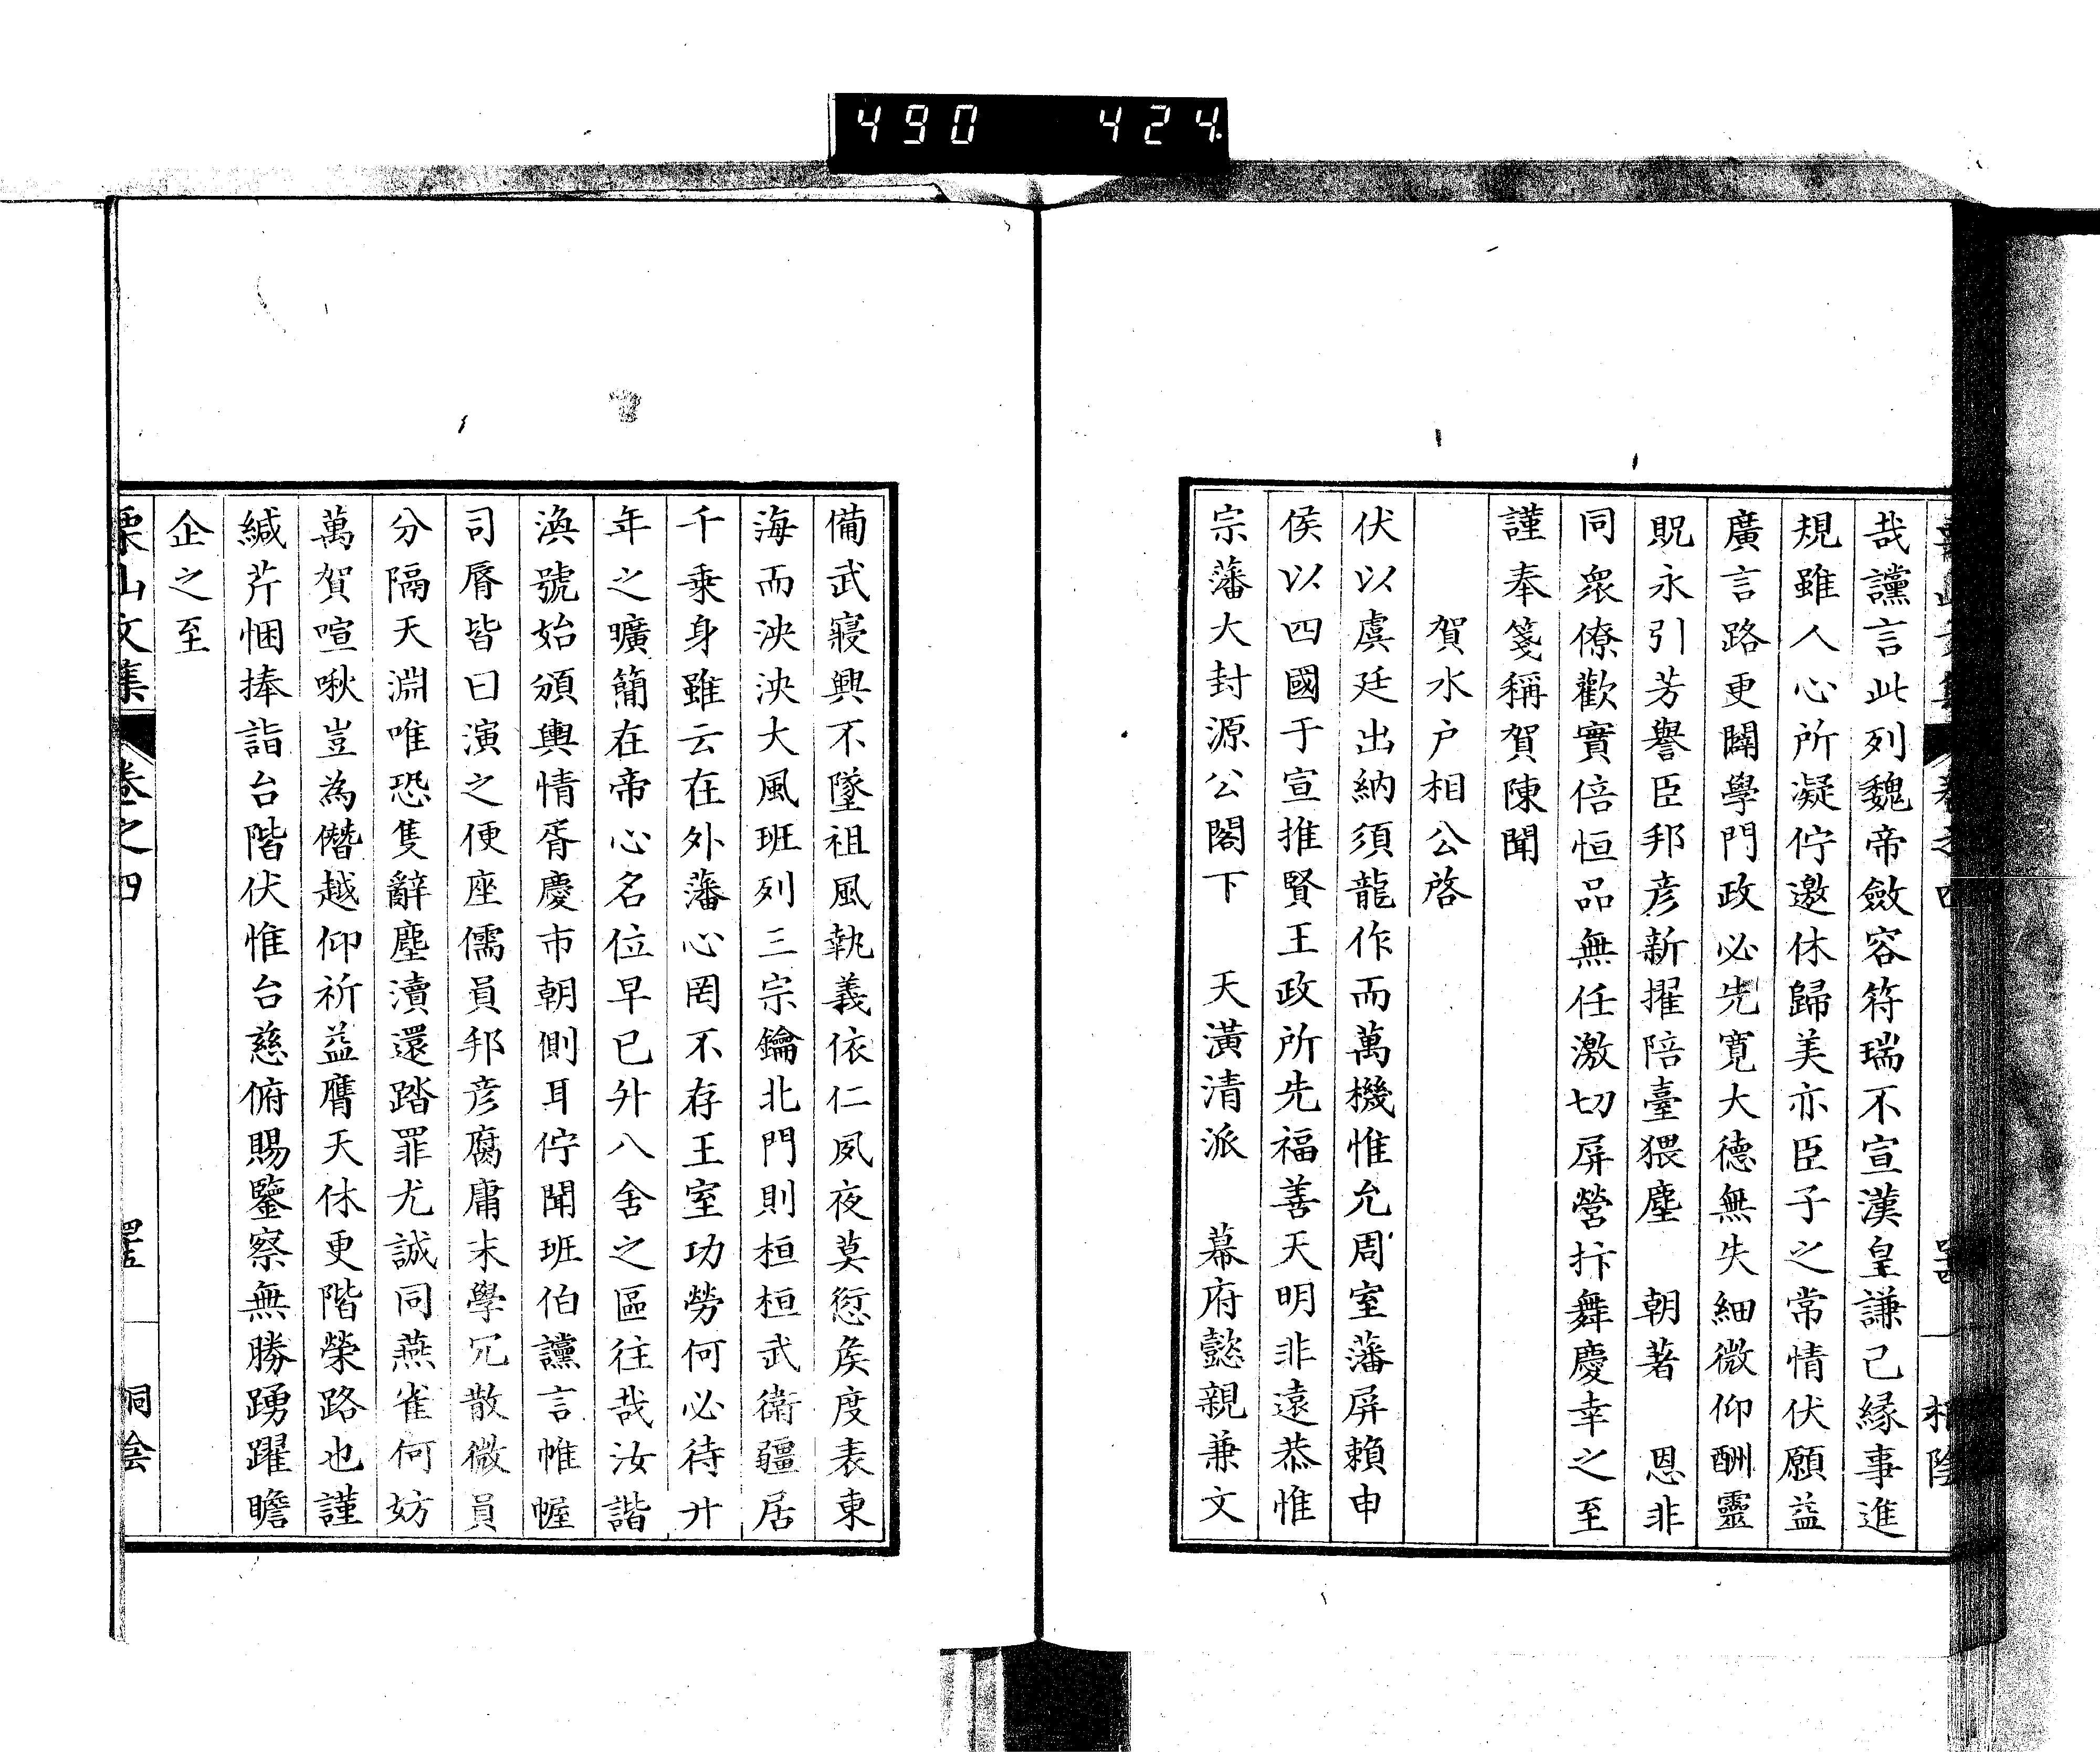 490 424
哉讜言此列魏帝斂容符瑞不宣漢皇謙己縁事進
規雖人心所凝佇邀休歸美亦臣子之常情伏願益
廣言路更闢學門政必先寛大德無失細微仰酬靈
貺永引芳譽臣邦彦新擢陪臺猥塵　朝著　恩非
同衆僚歡實倍恒品無任激切屏營抃舞慶幸之至
謹奉箋稱賀陳聞
賀水户相公啓
伏以虞廷出納須龍作而萬機惟允周室藩屏賴申
侯以四國于宣推賢王政所先福善天明非遠恭惟
宗藩大封源公閣下　天潢清派　幕府懿親兼文
備武寢興不墜祖風執義依仁夙夜莫愆矦度表東
海而泱泱大風班列三宗鑰北門則桓桓武衛疆居
千乗身雖云在外藩心罔不存王室功勞何必待廾
年之曠簡在帝心名位早已外八舍之區往哉汝諧
渙號始頒輿情胥慶市朝側耳佇聞班伯讜言帷幄
司脣皆曰演之便座儒員邦彦腐庸末學冗散微員
分隔天淵唯恐隻辭塵瀆還踏罪尤誠同燕雀何妨
萬賀喧啾豈為僭越仰祈益膺天休更階榮路也謹
緘芹悃捧詣台階伏惟台慈俯賜鑒察無勝踴躍瞻
企之至
栗山文集　卷之四